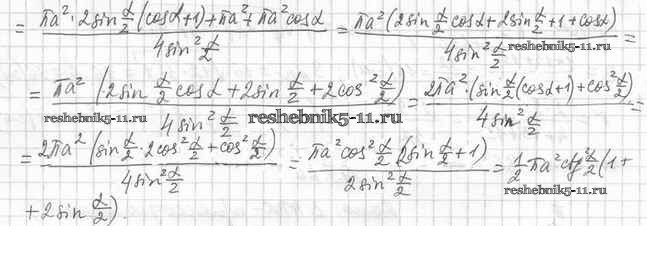 = (πa²·2sin α/2 (cosα+1)+πa²+πa²cosα)/(4sin² α/2) = (πa²(2sin α/2 cosα+2sin α/2+1+cosα))/(4sin² α/2) =
reshebnik5-11.ru
= (πa²(2sin α/2 cosα+2sin α/2+2cos² α/2))/(4sin² α/2) = (2πa²·(sin α/2 (cosα+1)+cos² α/2))/(4sin² α/2) =
reshebnik5-11.ru reshebnik5-11.ru
= (2πa²(sin α/2 · 2cos² α/2+cos² α/2))/(4sin² α/2) = (πa²cos² α/2 (2sin α/2+1))/(2sin² α/2) = 1/2 πa²ctg² α/2 (1+
reshebnik5-11.ru
+2sin α/2).